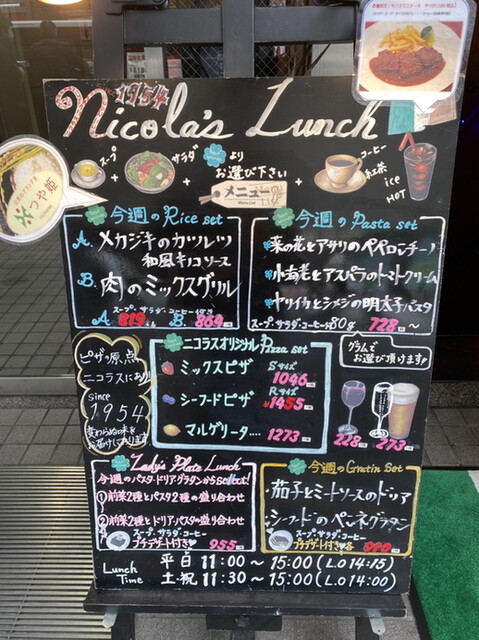 1954
Nicola's Lunch
スープ + サラダ + より お選び下さい + コーヒー 紅茶 ice HOT
メニュー
つや姫
今週の Rice set
A. メカジキのカツレツ
和風キノコソース
B. 肉のミックスグリル
スープ・サラダ・コーヒー付き
A. 819 B. 864
今週の Pasta set
菜の花とアサリのペペロンチーノ
小海老とアスパラのトマトクリーム
ヤリイカとシメジの明太子パスタ
スープ・サラダ・コーヒー 80g 728~
ピザの原点
ニコラスにあり!
since
1954
変わらぬの味を
お届けしております
ニコラスオリジナル Pizza set
ミックスピザ Sサイズ 1046
シーフードピザ Rサイズ ¥1455
マルゲリータ.... 1273
グラムで
お選び頂けます!
228 273
Lady's Plate Lunch
今週のパスタ・ドリア・グラタンからSelect!
①前菜2種とパスタ2種の盛り合わせ
②前菜2種とドリア・パスタの盛り合わせ
スープ・サラダ・コーヒー
プチデザート付き♥ 955
今週の Gratin Set
茄子とミートソースのドリア
シーフードのペンネグラタン
スープ・サラダ・コーヒー
プチデザート付き♥各 910
Lunch Time
平日 11:00~15:00(L.O 14:15)
土・祝 11:30~15:00(L.O 14:00)